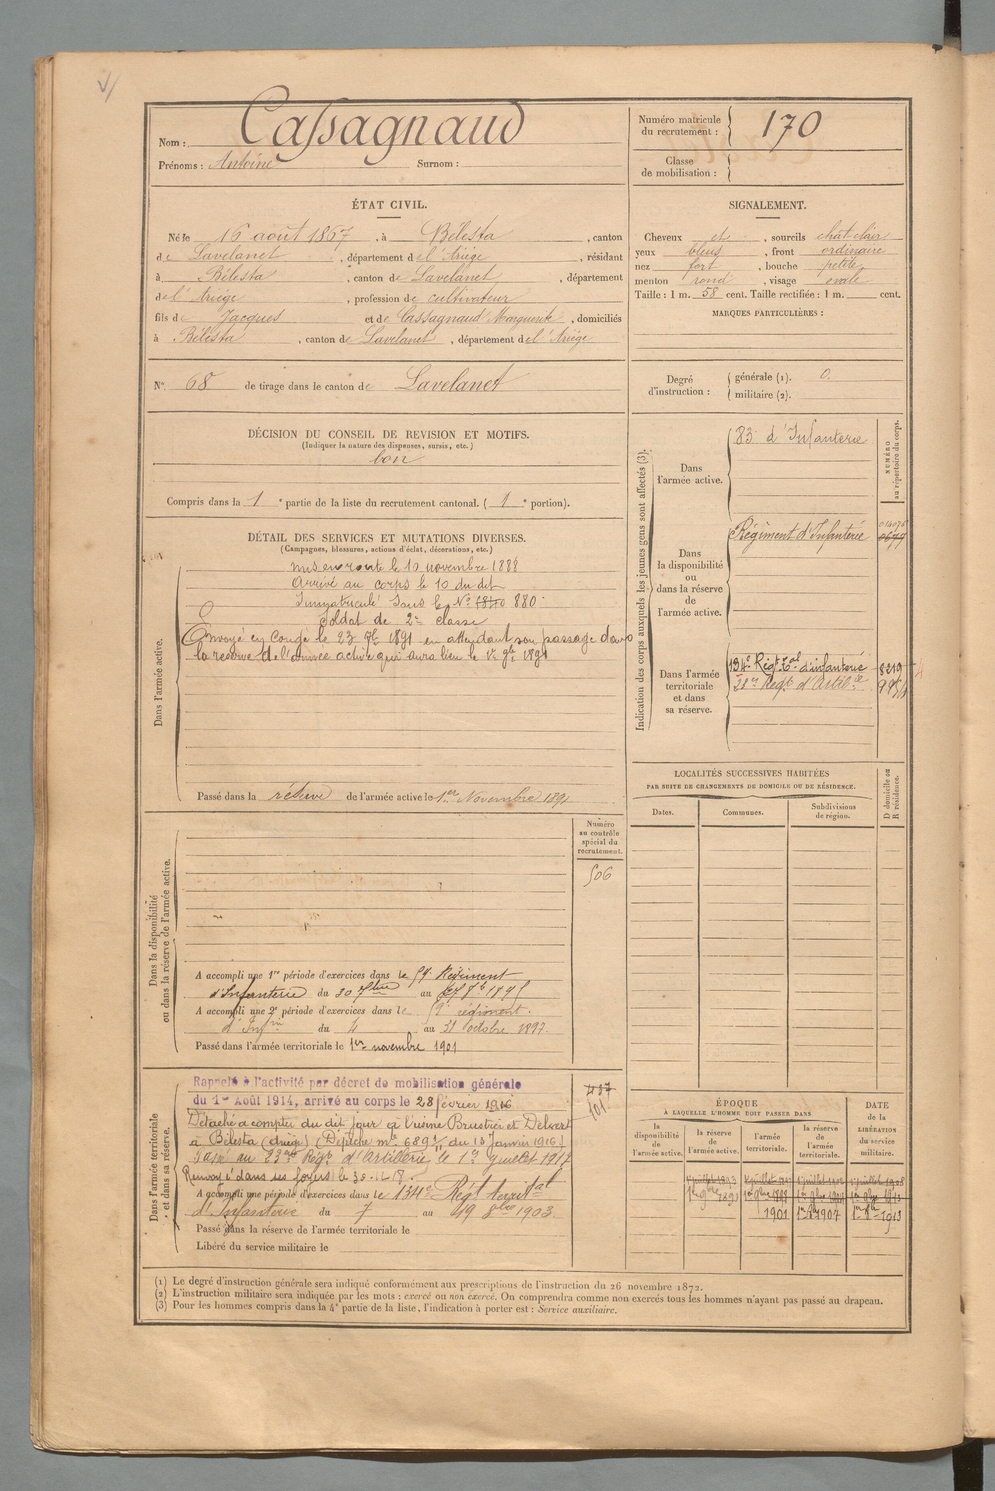 Nom : Cassagnaud
Prénoms : Antoine Surnom :
Numéro matricule du recrutement : 170
Classe de mobilisation :
ÉTAT CIVIL.
Né le 16 août 1867, à Bélesta, canton
de Lavelanet, département de l'Ariège, résidant
à Bélesta, canton de Lavelanet, département
de l'Ariège, profession de cultivateur
fils de Jacques et de Cassagnaud Marguerite, domiciliés
à Bélesta, canton de Lavelanet, département de l'Ariège
N° 68 de tirage dans le canton de Lavelanet
SIGNALEMENT.
Cheveux et, sourcils chat-clair
yeux bleus, front ordinaire
nez fort, bouche petite
menton rond, visage ovale
Taille : 1 m. 58 cent. Taille rectifiée : 1 m. cent.
MARQUES PARTICULIÈRES :
Degré d'instruction : générale (1). 0.
militaire (2).
DÉCISION DU CONSEIL DE REVISION ET MOTIFS.
(Indiquer la nature des dispenses, sursis, etc.)
bon
Compris dans la 1e partie de la liste du recrutement cantonal. (1e portion).
DÉTAIL DES SERVICES ET MUTATIONS DIVERSES.
(Campagnes, blessures, actions d'éclat, décorations, etc.)
Dans l'armée active.
mis en route le 10 novembre 1888
Arrivé au corps le 10 du dit
Immatriculé sous le N° 880
Soldat de 2e classe
Envoyé en congé le 23 7bre 1891 en attendant son passage dans
la réserve de l'armée active qui aura lieu le 1er 9bre 1891
Passé dans la réserve de l'armée active le 1er Novembre 1891
Dans la disponibilité
ou dans la réserve de l'armée active.
Numéro
au contrôle
spécial du
recrutement.
506
A accompli une 1re période d'exercices dans le 59 Régiment
d'Infanterie du 30 7bre au
A accompli une 2e période d'exercices dans le régiment.
d'Infie du 4 au 31 octobre 1897.
Passé dans l'armée territoriale le 1er novembre 1901
Dans l'armée territoriale
et dans sa réserve.
Rappelé à l'activité par décret de mobilisation générale
du 1er Août 1914, arrivé au corps le 28 février 1916
Détaché à compter du dit jour à l'usine Brustier et Delvert
à Bélesta (Ariège) (Dépêche du 13 Janvier 1916)
Passé au 23me Régt d'Artillerie le 1er Juillet 1917
Renvoyé dans ses foyers le
A accompli une période d'exercices dans le 134e Régt territal
d'Infanterie du 7 au 19 8bre 1903.
Passé dans la réserve de l'armée territoriale le
Libéré du service militaire le
437
101
Indication des corps auxquels les jeunes gens sont affectés (3).
NUMÉRO
au répertoire du corps.
Dans l'armée active.
83e d'Infanterie
Dans la disponibilité ou dans la réserve de l'armée active.
Régiment d'Infanterie
Dans l'armée territoriale et dans sa réserve.
134e Régt Tal d'infanterie 8219
Régt d'Artille
LOCALITÉS SUCCESSIVES HABITÉES
PAR SUITE DE CHANGEMENTS DE DOMICILE OU DE RÉSIDENCE.
Dates.
Communes.
Subdivisions de région.
D domicile ou
R résidence.
ÉPOQUE
À LAQUELLE L'HOMME DOIT PASSER DANS
DATE
de la
LIBÉRATION
du service
militaire.
la disponibilité de l'armée active.
la réserve de l'armée active.
l'armée territoriale.
la réserve de l'armée territoriale.
1901 1er 8bre 1907 1er 8bre 1913
(1) Le degré d'instruction générale sera indiqué conformément aux prescriptions de l'instruction du 26 novembre 1872.
(2) L'instruction militaire sera indiquée par les mots : exercé ou non exercé. On comprendra comme non exercés tous les hommes n'ayant pas passé au drapeau.
(3) Pour les hommes compris dans la 4e partie de la liste, l'indication à porter est : Service auxiliaire.